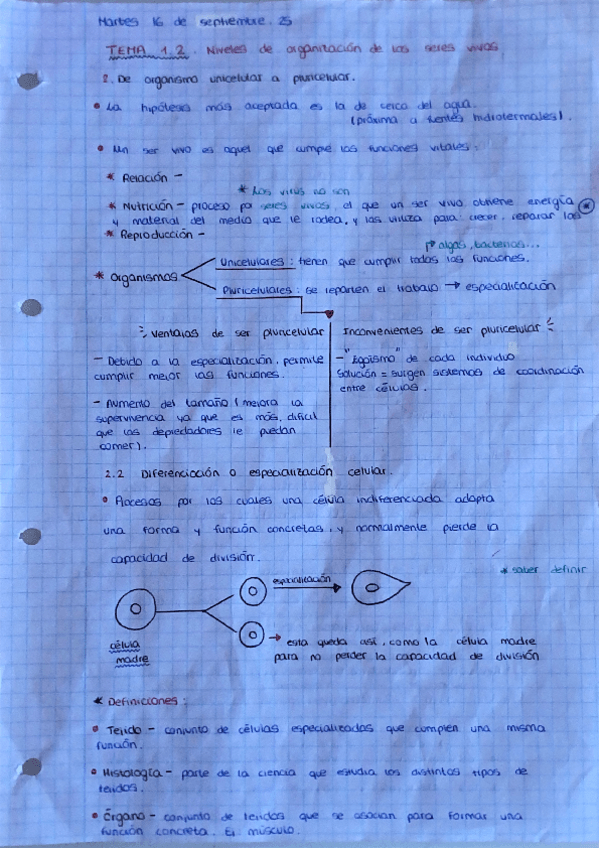 Martes 16 de septiembre. 25
TEMA 1.2. Niveles de organización de los seres vivos
2. De organismo unicelular a pluricelular.
• La hipótesis más aceptada es la de cerca del agua.
(próxima a fuentes hidrotermales).
• Un ser vivo es aquel que cumple las funciones vitales:
* Relación -
* Los virus no son
* Nutrición - proceso seres vivos, el que un ser vivo obtiene energía
y material del medio que le rodea, y las utiliza para crecer, reparar los
* Reproducción -
algas, bacterias...
Unicelulares: tienen que cumplir todas las funciones.
* Organismos
Pluricelulares: se reparten el trabajo → especialización
Ventajas de ser pluricelular
- Debido a la especialización, permite
cumplir mejor las funciones.
- Aumento del tamaño (mejora la
supervivencia ya que es más difícil
que los depredadores le puedan
comer).
Inconvenientes de ser pluricelular
- "Egoísmo" de cada individuo
Solución = surgen sistemas de coordinación
entre células.
2.2 Diferenciación o especialización celular.
• Procesos por los cuales una célula indiferenciada adopta
una forma y función concretas, y normalmente pierde la
capacidad de división.
* saber definir
especialización
célula
madre
→ esta queda así, como la célula madre
para no perder la capacidad de división
* Definiciones:
• Tejido - conjunto de células especializadas que cumplen una misma
función.
• Histología - parte de la ciencia que estudia los distintos tipos de
tejidos.
• Órgano - conjunto de tejidos que se asocian para formar una
función concreta. Ej músculo.